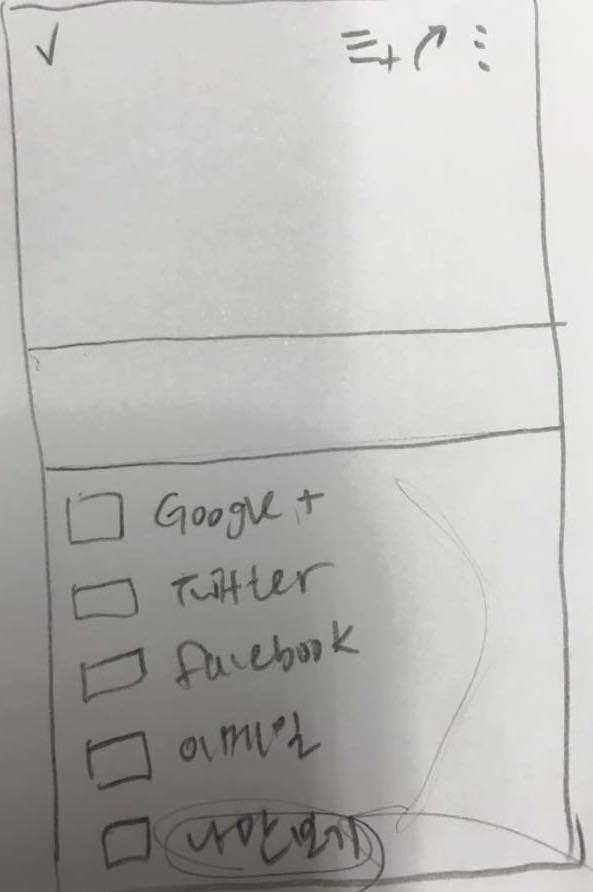 Google +
Twitter
facebook
이메일
나만보기